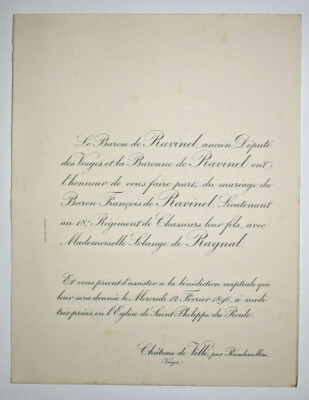 Le Baron de Ravinel, ancien Député
des Vosges et la Baronne de Ravinel ont
l'honneur de vous faire part du mariage du
Baron François de Ravinel, Lieutenant
au 18e Régiment de Chasseurs, leur fils, avec
Mademoiselle Solange de Raynal.
Et vous prient d'assister à la bénédiction nuptiale qui
leur sera donnée le Mercredi 12 Février 1896, à midi
très précis, en l'Eglise de Saint Philippe du Roule.
Château de Villé, par Rambervillers
(Vosges)